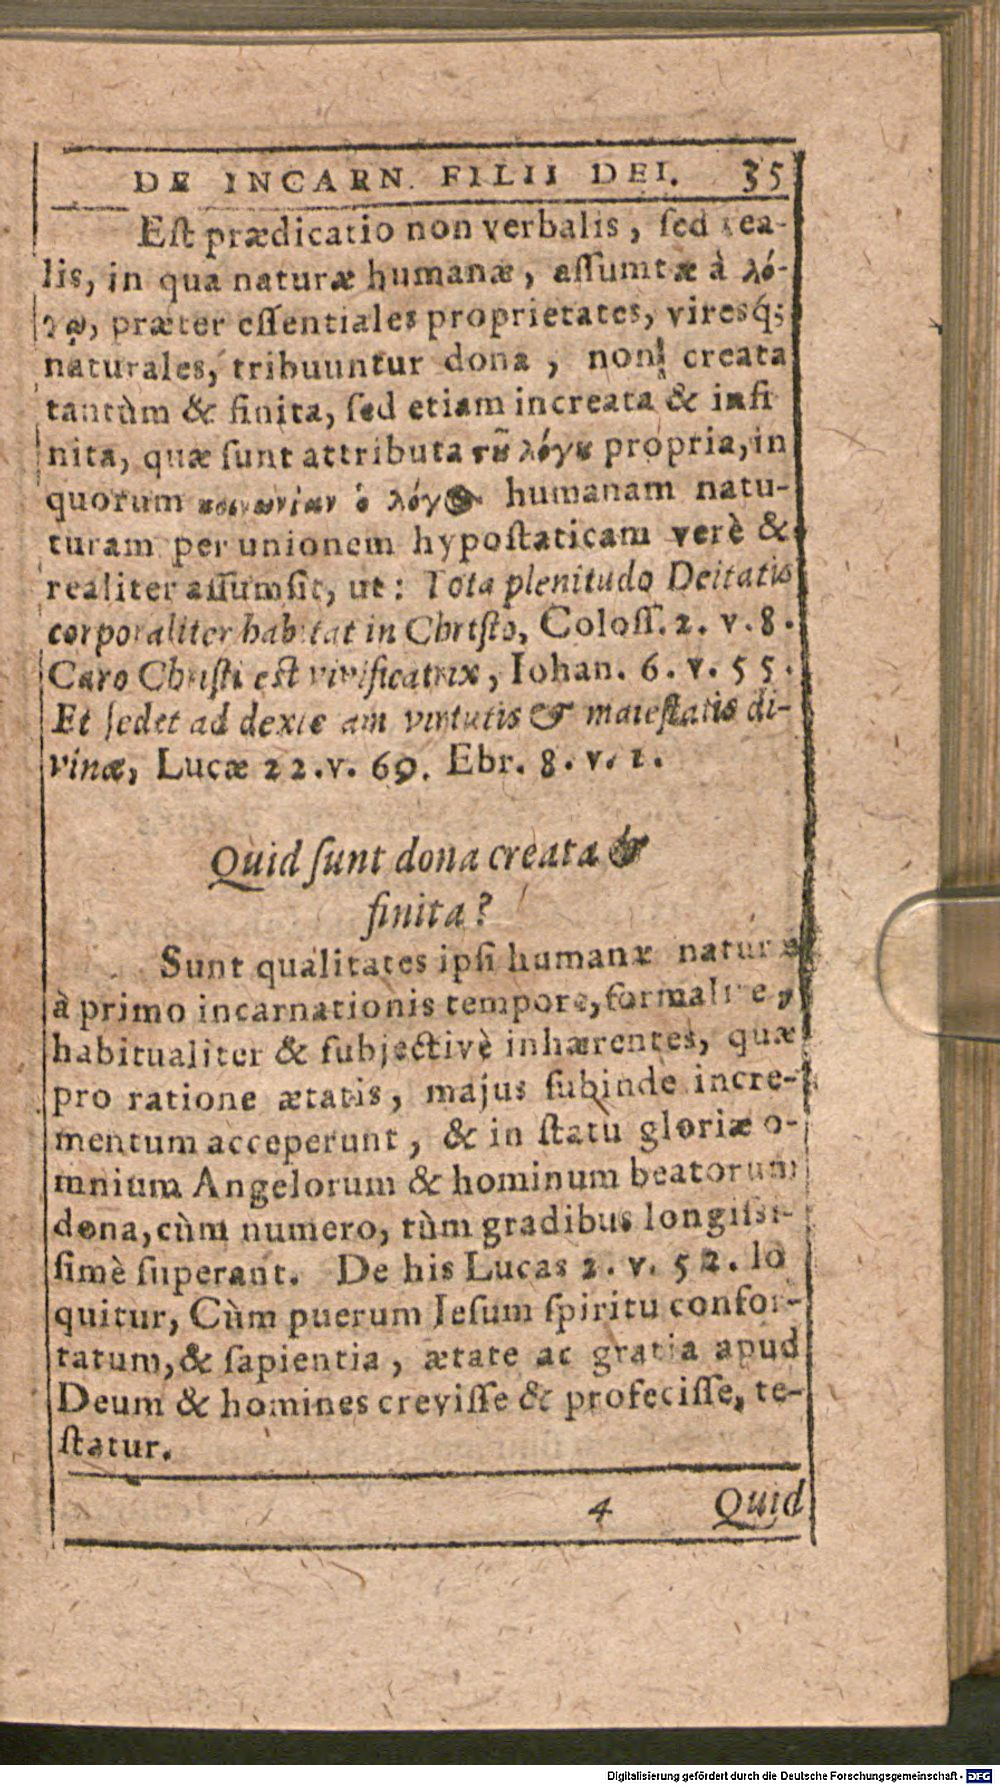 DE INCARN. FILII DEI. 35
Est prædicatio non verbalis, sed rea-
lis, in qua naturæ humanæ, assumtæ à λό-
γῳ, præter essentiales proprietates, viresq́;
naturales, tribuuntur dona, non creata
tantùm & finita, sed etiam increata & infi
nita, quæ sunt attributa τȣ͂ λόγȣ propria, in
quorum κοινωνίαν ὁ λόγος humanam natu-
turam per unionem hypostaticam verè &
realiter assumsit, ut: Tota plenitudo Deitatis
corporaliter habitat in Christo, Coloss. 2. v. 8.
Caro Christi est vivificatrix, Iohan. 6. v. 55.
Et sedet ad dexteram virtutis & maiestatis di-
vinæ, Lucæ 22. v. 69. Ebr. 8. v. 1.
Quid sunt dona creata &
finita?
Sunt qualitates ipsi humanæ naturæ
à primo incarnationis tempore, formalite,
habitualiter & subjectivè inhærentes, quæ
pro ratione ætatis, majus subinde incre-
mentum acceperunt, & in statu gloriæ o-
mnium Angelorum & hominum beatorum
dona, cùm numero, tùm gradibus longissi-
simè superant. De his Lucas 2. v. 52. lo
quitur, Cùm puerum Iesum spiritu confor-
tatum, & sapientia, ætate ac gratia apud
Deum & homines crevisse & profecisse, te-
statur.
4 Quid
Digitalisierung gefördert durch die Deutsche Forschungsgemeinschaft - DFG